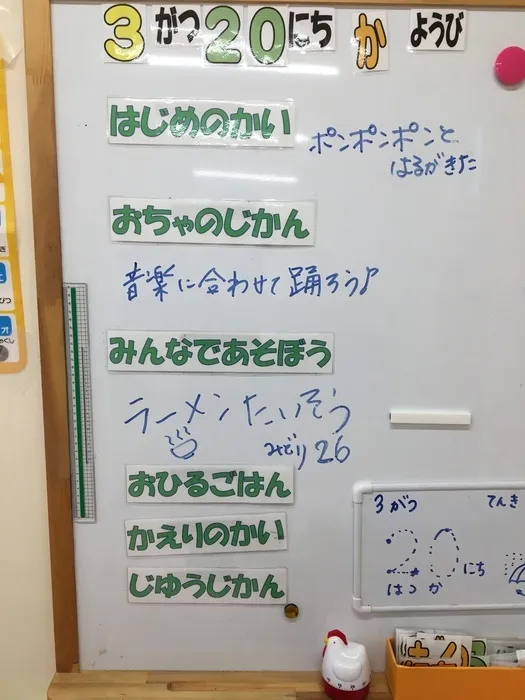 3 がつ 20 にち か ようび
はじめのかい
ポンポンポンと
はるがきた
おちゃのじかん
音楽に合わせて踊ろう♪
みんなであそぼう
ラーメンたいそう
みどり26
おひるごはん
かえりのかい
じゆうじかん
3がつ
てんき
20にち
はつか